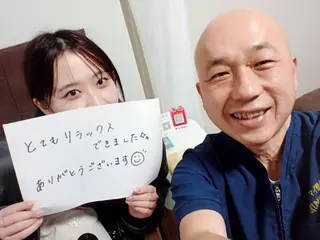 とてもリラックス
できましたな。
ありがとうございます